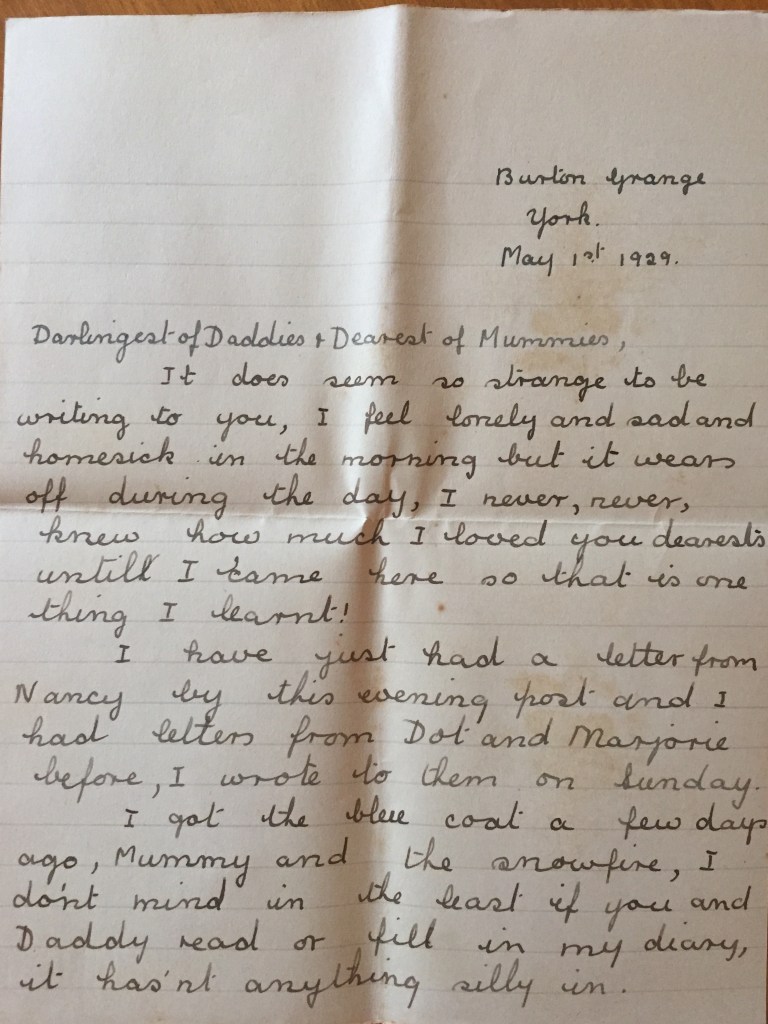 Burton Grange
York.
May 1st 1929.
Darlingest of Daddies & Dearest of Mummies,
It does seem so strange to be
writing to you, I feel lonely and sad and
homesick in the morning but it wears
off during the day, I never, never,
knew how much I loved you dearests
untill I came here so that is one
thing I learnt!
I have just had a letter from
Nancy by this evening post and I
had letters from Dot and Marjorie
before, I wrote to them on Sunday.
I got the blue coat a few days
ago, Mummy and the snowfire, I
do'nt mind in the least if you and
Daddy read or fill in my diary,
it has'nt anything silly in.